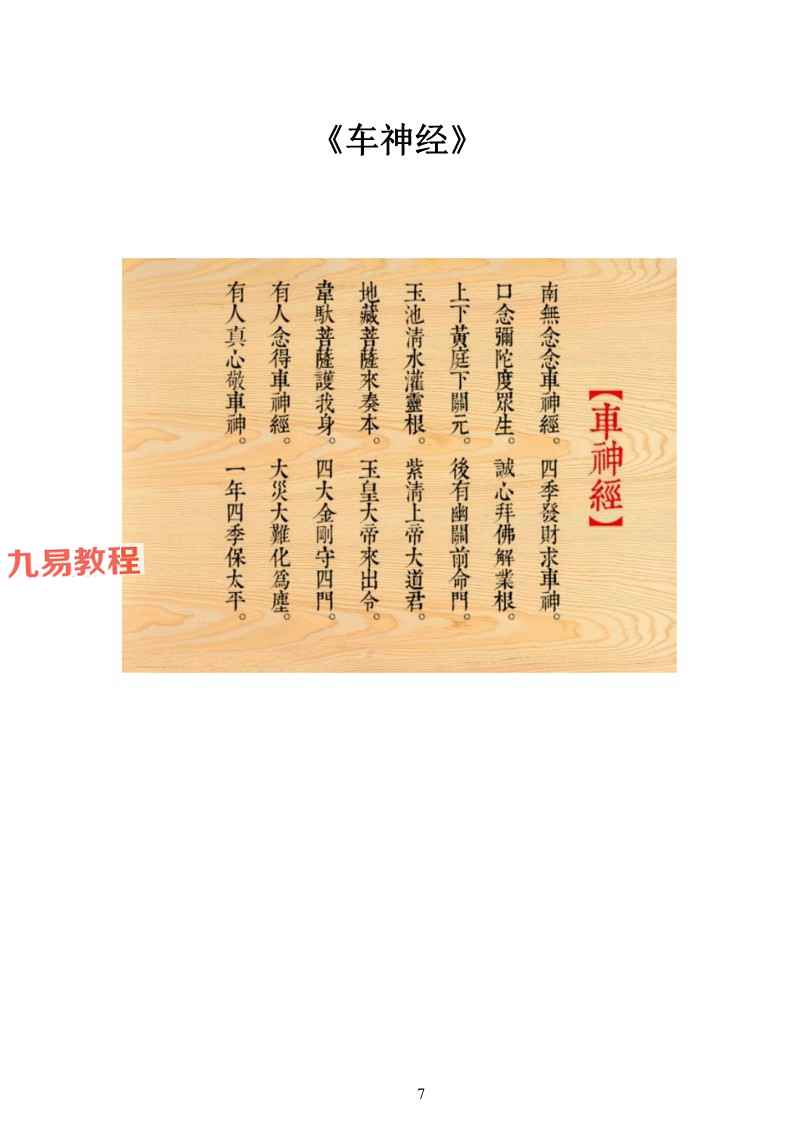 《车神经》
【車神經】
南無念念車神經。四季發財求車神。
口念彌陀度眾生。誠心拜佛解業根。
上下黃庭下關元。後有幽關前命門。
玉池清水灌靈根。紫清上帝大道君。
地藏菩薩來奏本。玉皇大帝來出令。
韋馱菩薩護我身。四大金剛守四門。
有人念得車神經。大災大難化為塵。
有人真心敬車神。一年四季保太平。
九易教程
7